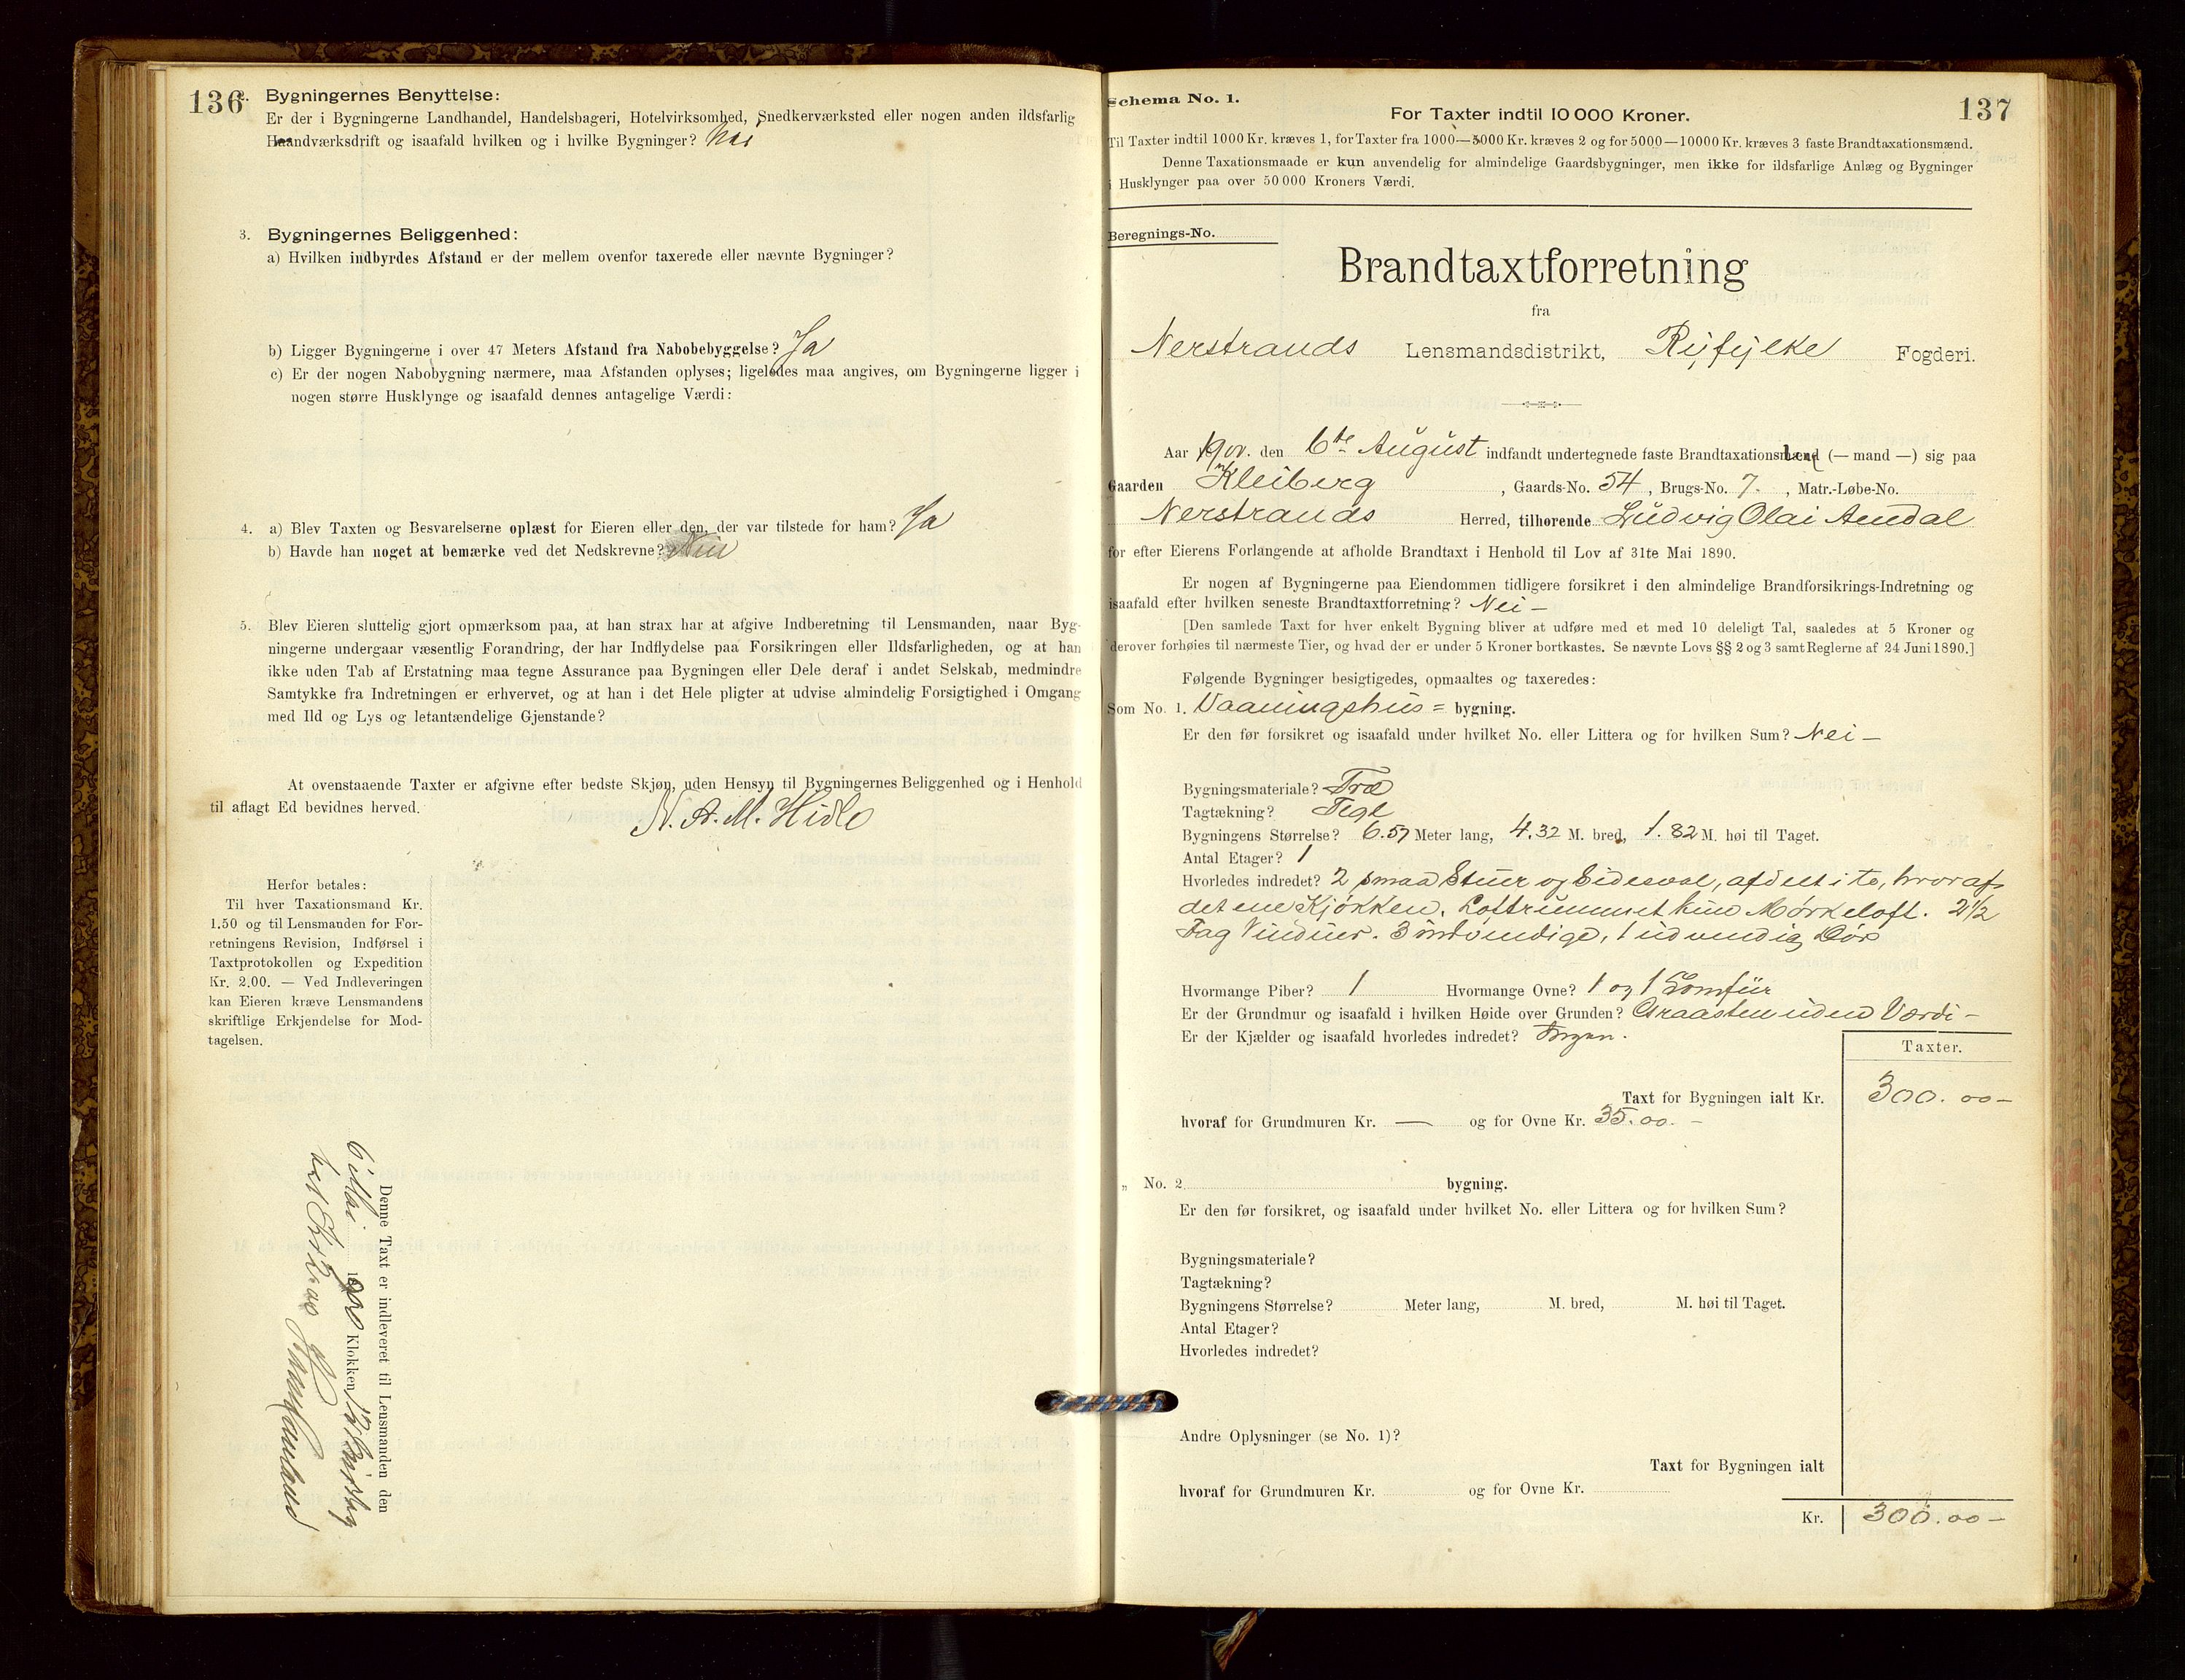 136
2. Bygningernes Benyttelse:
Er der i Bygningerne Landhandel, Handelsbageri, Hotelvirksomhed, Snedkerværksted eller nogen anden ildsfarlig
Haandværksdrift og isaafald hvilken og i hvilke Bygninger? Nei
3. Bygningernes Beliggenhed:
a) Hvilken indbyrdes Afstand er der mellem ovenfor taxerede eller nævnte Bygninger?
b) Ligger Bygningerne i over 47 Meters Afstand fra Nabobebyggelse? Ja
c) Er der nogen Nabobygning nærmere, maa Afstanden oplyses; ligeledes maa angives, om Bygningerne ligger i
nogen større Husklynge og isaafald dennes antagelige Værdi:
4. a) Blev Taxten og Besvarelserne oplæst for Eieren eller den, der var tilstede for ham? Ja
b) Havde han noget at bemærke ved det Nedskrevne? Nei
5. Blev Eieren sluttelig gjort opmærksom paa, at han strax har at afgive Indberetning til Lensmanden, naar Byg-
ningerne undergaar væsentlig Forandring, der har Indflydelse paa Forsikringen eller Ildsfarligheden, og at han
ikke uden Tab af Erstatning maa tegne Assurance paa Bygningen eller Dele deraf i andet Selskab, medmindre
Samtykke fra Indretningen er erhvervet, og at han i det Hele pligter at udvise almindelig Forsigtighed i Omgang
med Ild og Lys og letantændelige Gjenstande?
At ovenstaaende Taxter er afgivne efter bedste Skjøn, uden Hensyn til Bygningernes Beliggenhed og i Henhold
til aflagt Ed bevidnes herved.
N. A. M. Hidle
Herfor betales:
Til hver Taxationsmand Kr.
1.50 og til Lensmanden for For-
retningens Revision, Indførsel i
Taxtprotokollen og Expedition
Kr. 2.00. — Ved Indleveringen
kan Eieren kræve Lensmandens
skriftlige Erkjendelse for Mod-
tagelsen.
Denne Taxt er indleveret til Lensmanden den
Klokken 12
Schema No. 1.
137
For Taxter indtil 10 000 Kroner.
Til Taxter indtil 1000 Kr. kræves 1, for Taxter fra 1000—5000 Kr. kræves 2 og for 5000—10000 Kr. kræves 3 faste Brandtaxationsmænd.
Denne Taxationsmaade er kun anvendelig for almindelige Gaardsbygninger, men ikke for ildsfarlige Anlæg og Bygninger
i Husklynger paa over 50 000 Kroners Værdi.
Beregnings-No.
Brandtaxtforretning
fra
Nerstrands Lensmandsdistrikt, Ryfylke Fogderi.
Aar 1900. den 6te August indfandt undertegnede faste Brandtaxationsmænd (— mand —) sig paa
Gaarden Kleiberg, Gaards-No. 54, Brugs-No. 7., Matr.-Løbe-No.
Nerstrands Herred, tilhørende Ludvig Olai Amdal
for efter Eierens Forlangende at afholde Brandtaxt i Henhold til Lov af 31te Mai 1890.
Er nogen af Bygningerne paa Eiendommen tidligere forsikret i den almindelige Brandforsikrings-Indretning og
isaafald efter hvilken seneste Brandtaxtforretning? Nei —
[Den samlede Taxt for hver enkelt Bygning bliver at udføre med et med 10 deleligt Tal, saaledes at 5 Kroner og
derover forhøies til nærmeste Tier, og hvad der er under 5 Kroner bortkastes. Se nævnte Lovs §§ 2 og 3 samt Reglerne af 24 Juni 1890.]
Følgende Bygninger besigtigedes, opmaaltes og taxeredes:
Som No. 1. Vaaningshus = bygning.
Er den før forsikret og isaafald under hvilket No. eller Littera og for hvilken Sum? Nei —
Bygningsmateriale? Træ
Tagtækning? Tegl
Bygningens Størrelse? 6.57 Meter lang, 4.32 M. bred, 1.82 M. høi til Taget.
Antal Etager? 1
Hvorledes indredet? 2 smaa Stuer og Sidesval, afdelt i to, hvoraf
det ene Kjøkken. Loftrummet kun Mørkeloft. 2½
Fag Vinduer. 3 indvendige, 1 udvendig Dør
Hvormange Piber? 1 Hvormange Ovne? 1 og 1 Komfur
Er der Grundmur og isaafald i hvilken Høide over Grunden? Graasten uden Værdi —
Er der Kjælder og isaafald hvorledes indredet? Ingen.
Taxter.
Taxt for Bygningen ialt Kr. 300.00 —
hvoraf for Grundmuren Kr. — og for Ovne Kr. 35.00. —
„ No. 2 bygning.
Er den før forsikret, og isaafald under hvilket No. eller Littera og for hvilken Sum?
Bygningsmateriale?
Tagtækning?
Bygningens Størrelse? Meter lang, M. bred, M. høi til Taget.
Antal Etager?
Hvorledes indredet?
Andre Oplysninger (se No. 1)?
Taxt for Bygningen ialt
hvoraf for Grundmuren Kr. og for Ovne Kr.
Kr. 300.00 —